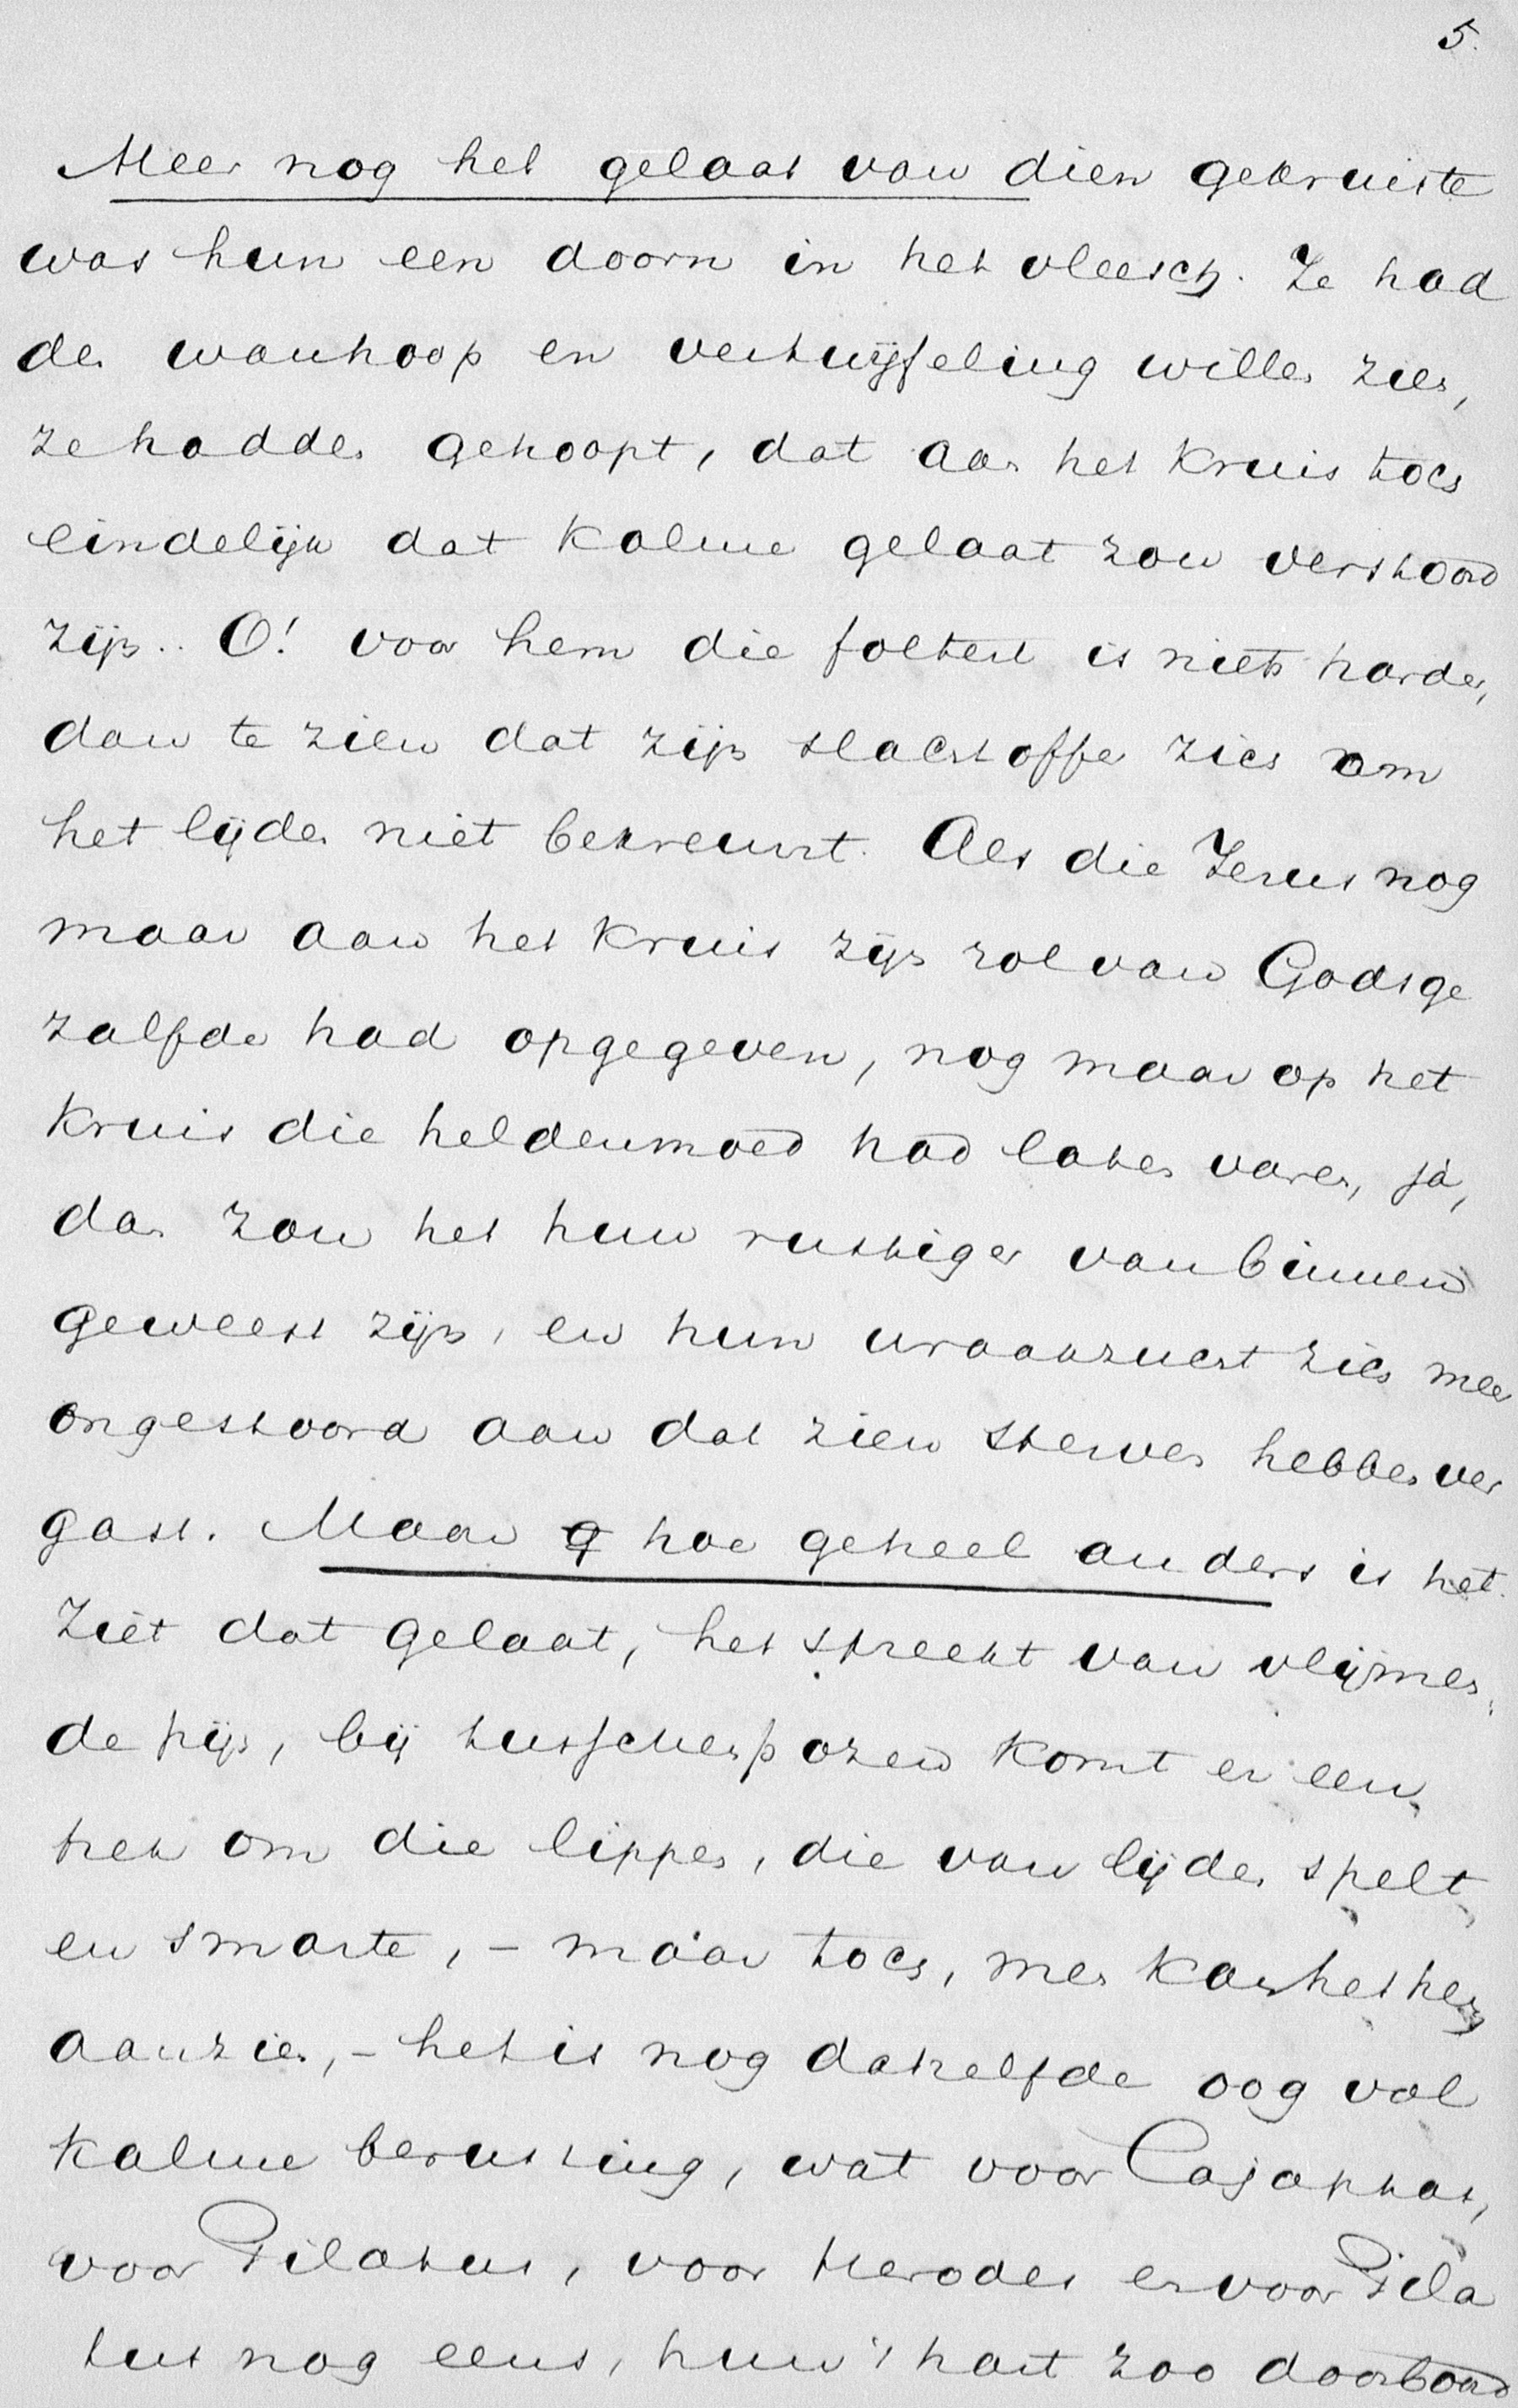 5.
Meer nog het gelaat van dien gekruiste
was hun een doorn in het vleesch. Ze had
den wanhoop en vertwijfeling willen zien,
ze hadden gehoopt, dat aan het kruis toch
eindelijk dat kalme gelaat zou verstoord
zijn.. O! voor hem die foltert is niets harder,
dan te zien dat zijn slachtoffer zich om
het lijden niet bekreunt. Als die Jezus nog
maar aan het kruis zijn rol van Gods ge
zalfde had opgegeven, nog maar op het
kruis die heldenmoed had laten varen, ja,
dan zou het hun rustiger van binnen
geweest zijn, en hun wraakzucht zich meer
ongestoord aan dat zien sterven hebben ver
gast. Maar hoe geheel anders is het.
Ziet dat gelaat, het spreekt van vlijmen
de pijn, bij tusschenpozen komt er een
trek om die lippen, die van lijden spelt
en smarte, – maar toch, men kan het hem
aanzien, – het is nog datzelfde oog vol
kalme berusting, wat voor Cajaphas,
voor Pilatus, voor Herodes en voor Pila
tus nog eens, hun 't hart zoo doorboord